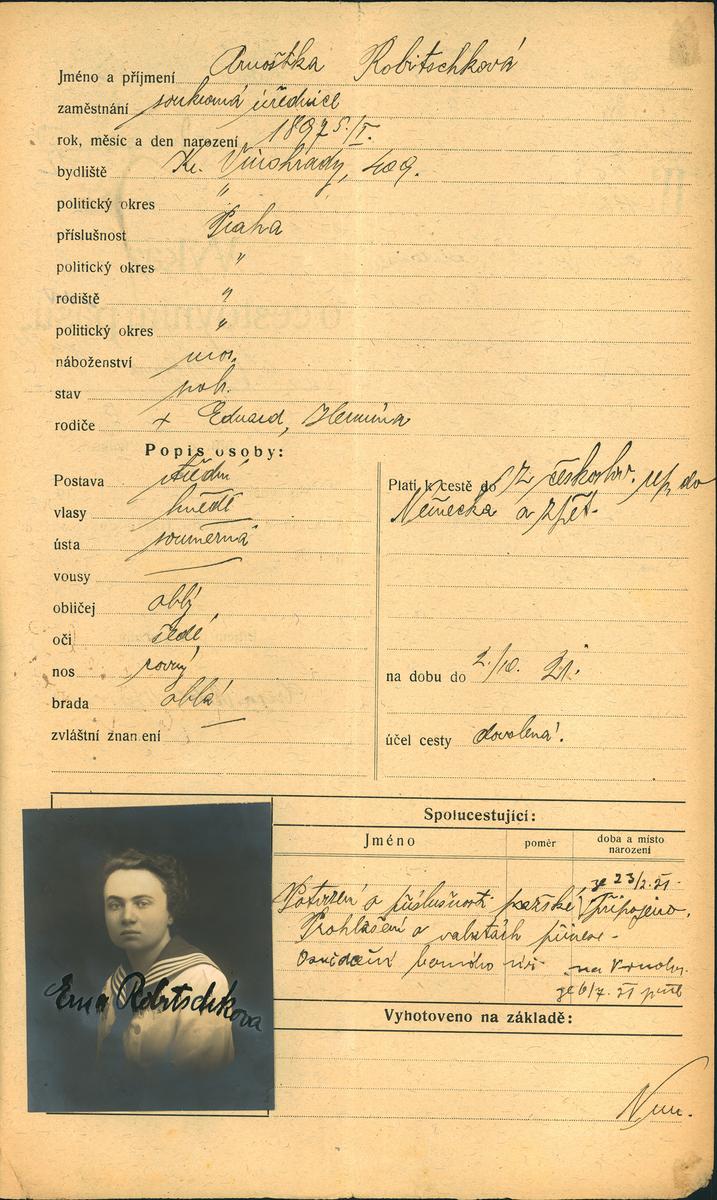 Jméno a příjmení Arnoštka Robitschková
zaměstnání soukromá úřednice
rok, měsíc a den narození 1897 5./I.
bydliště Kr. Vinohrady, 409.
politický okres "
příslušnost Praha
politický okres "
rodiště "
politický okres "
náboženství mos.
stav
rodiče + Eduard, Hermína
Popis osoby:
Postava střední
vlasy hnědé
ústa souměrná
vousy —
obličej oblý
oči šedé
nos rovný
brada oblá
zvláštní znamení —
Platí k cestě do z českoslov. rep. do
Německa a zpět.
na dobu do 2./10. 21.
účel cesty dovolená.
Spolucestující:
Jméno poměr doba a místo narození
23/2. 21.
Potvrzení o příslušnosti pražské připojeno.
Prohlášení o valutách
na
6/7. 21
Vyhotoveno na základě:
Erna Robitschkova